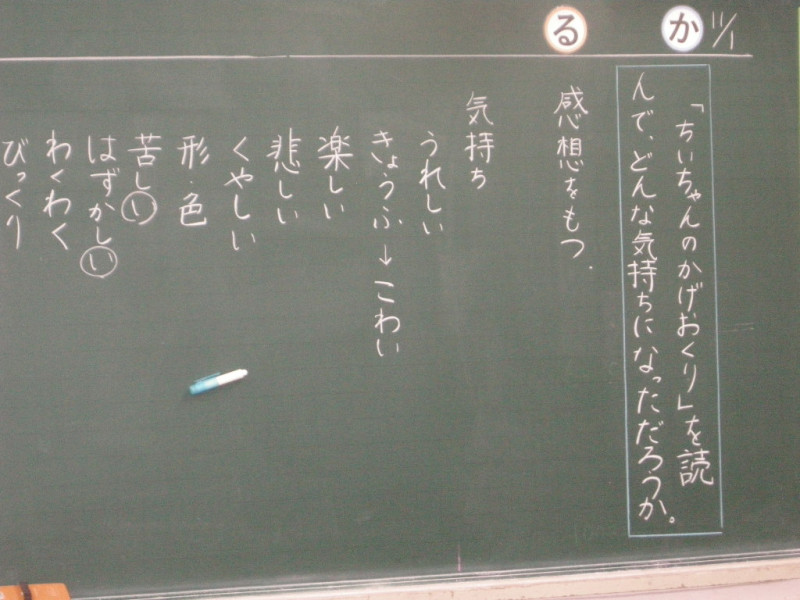 11/1
か
「ちいちゃんのかげおくり」を読
んで、どんな気持ちになっただろうか。
る
感想をもつ.
気持ち
うれしい
きょうふ→こわい
楽しい
悲しい
くやしい
形・色
苦しい
はずかしい
わくわく
びっくり